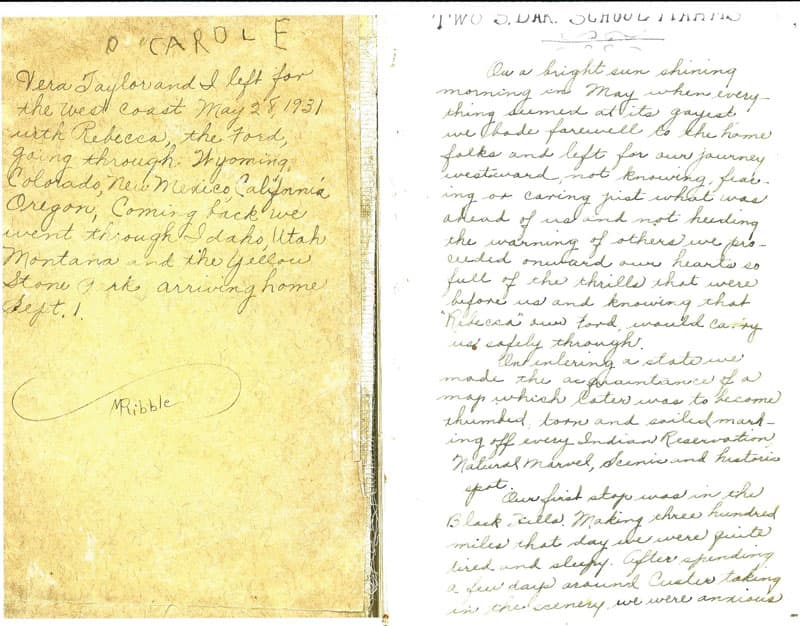 CAROLE
Vera Taylor and I left for
the west coast May 28, 1931
with Rebecca, the Ford,
going through Wyoming
Colorado, New Mexico, California
Oregon, Coming back we
went through Idaho, Utah
Montana and the Yellow
Stone arriving home
Sept. 1.
McRibble
TWO S. DAK. SCHOOL MARMS
On a bright sun shining
morning in May when every-
thing seemed at its gayest
we bade farewell to the home
folks and left for our journey
westward, not knowing, fear-
ing or caring just what was
ahead of us and not heeding
the warning of others we pro-
ceeded onward our hearts so
full of the thrills that were
before us and knowing that
"Rebecca" our Ford, would carry
us safely through.
On entering a state we
made the acquaintance of a
map which later was to become
thumbed, torn and soiled, mark-
ing off every Indian Reservation,
Natural Marvel, Scenic and historic
spot.
Our first stop was in the
Black Hills. Making three hundred
miles that day we were quite
tired and sleepy. After spending
a few days around Custer taking
in the scenery, we were anxious